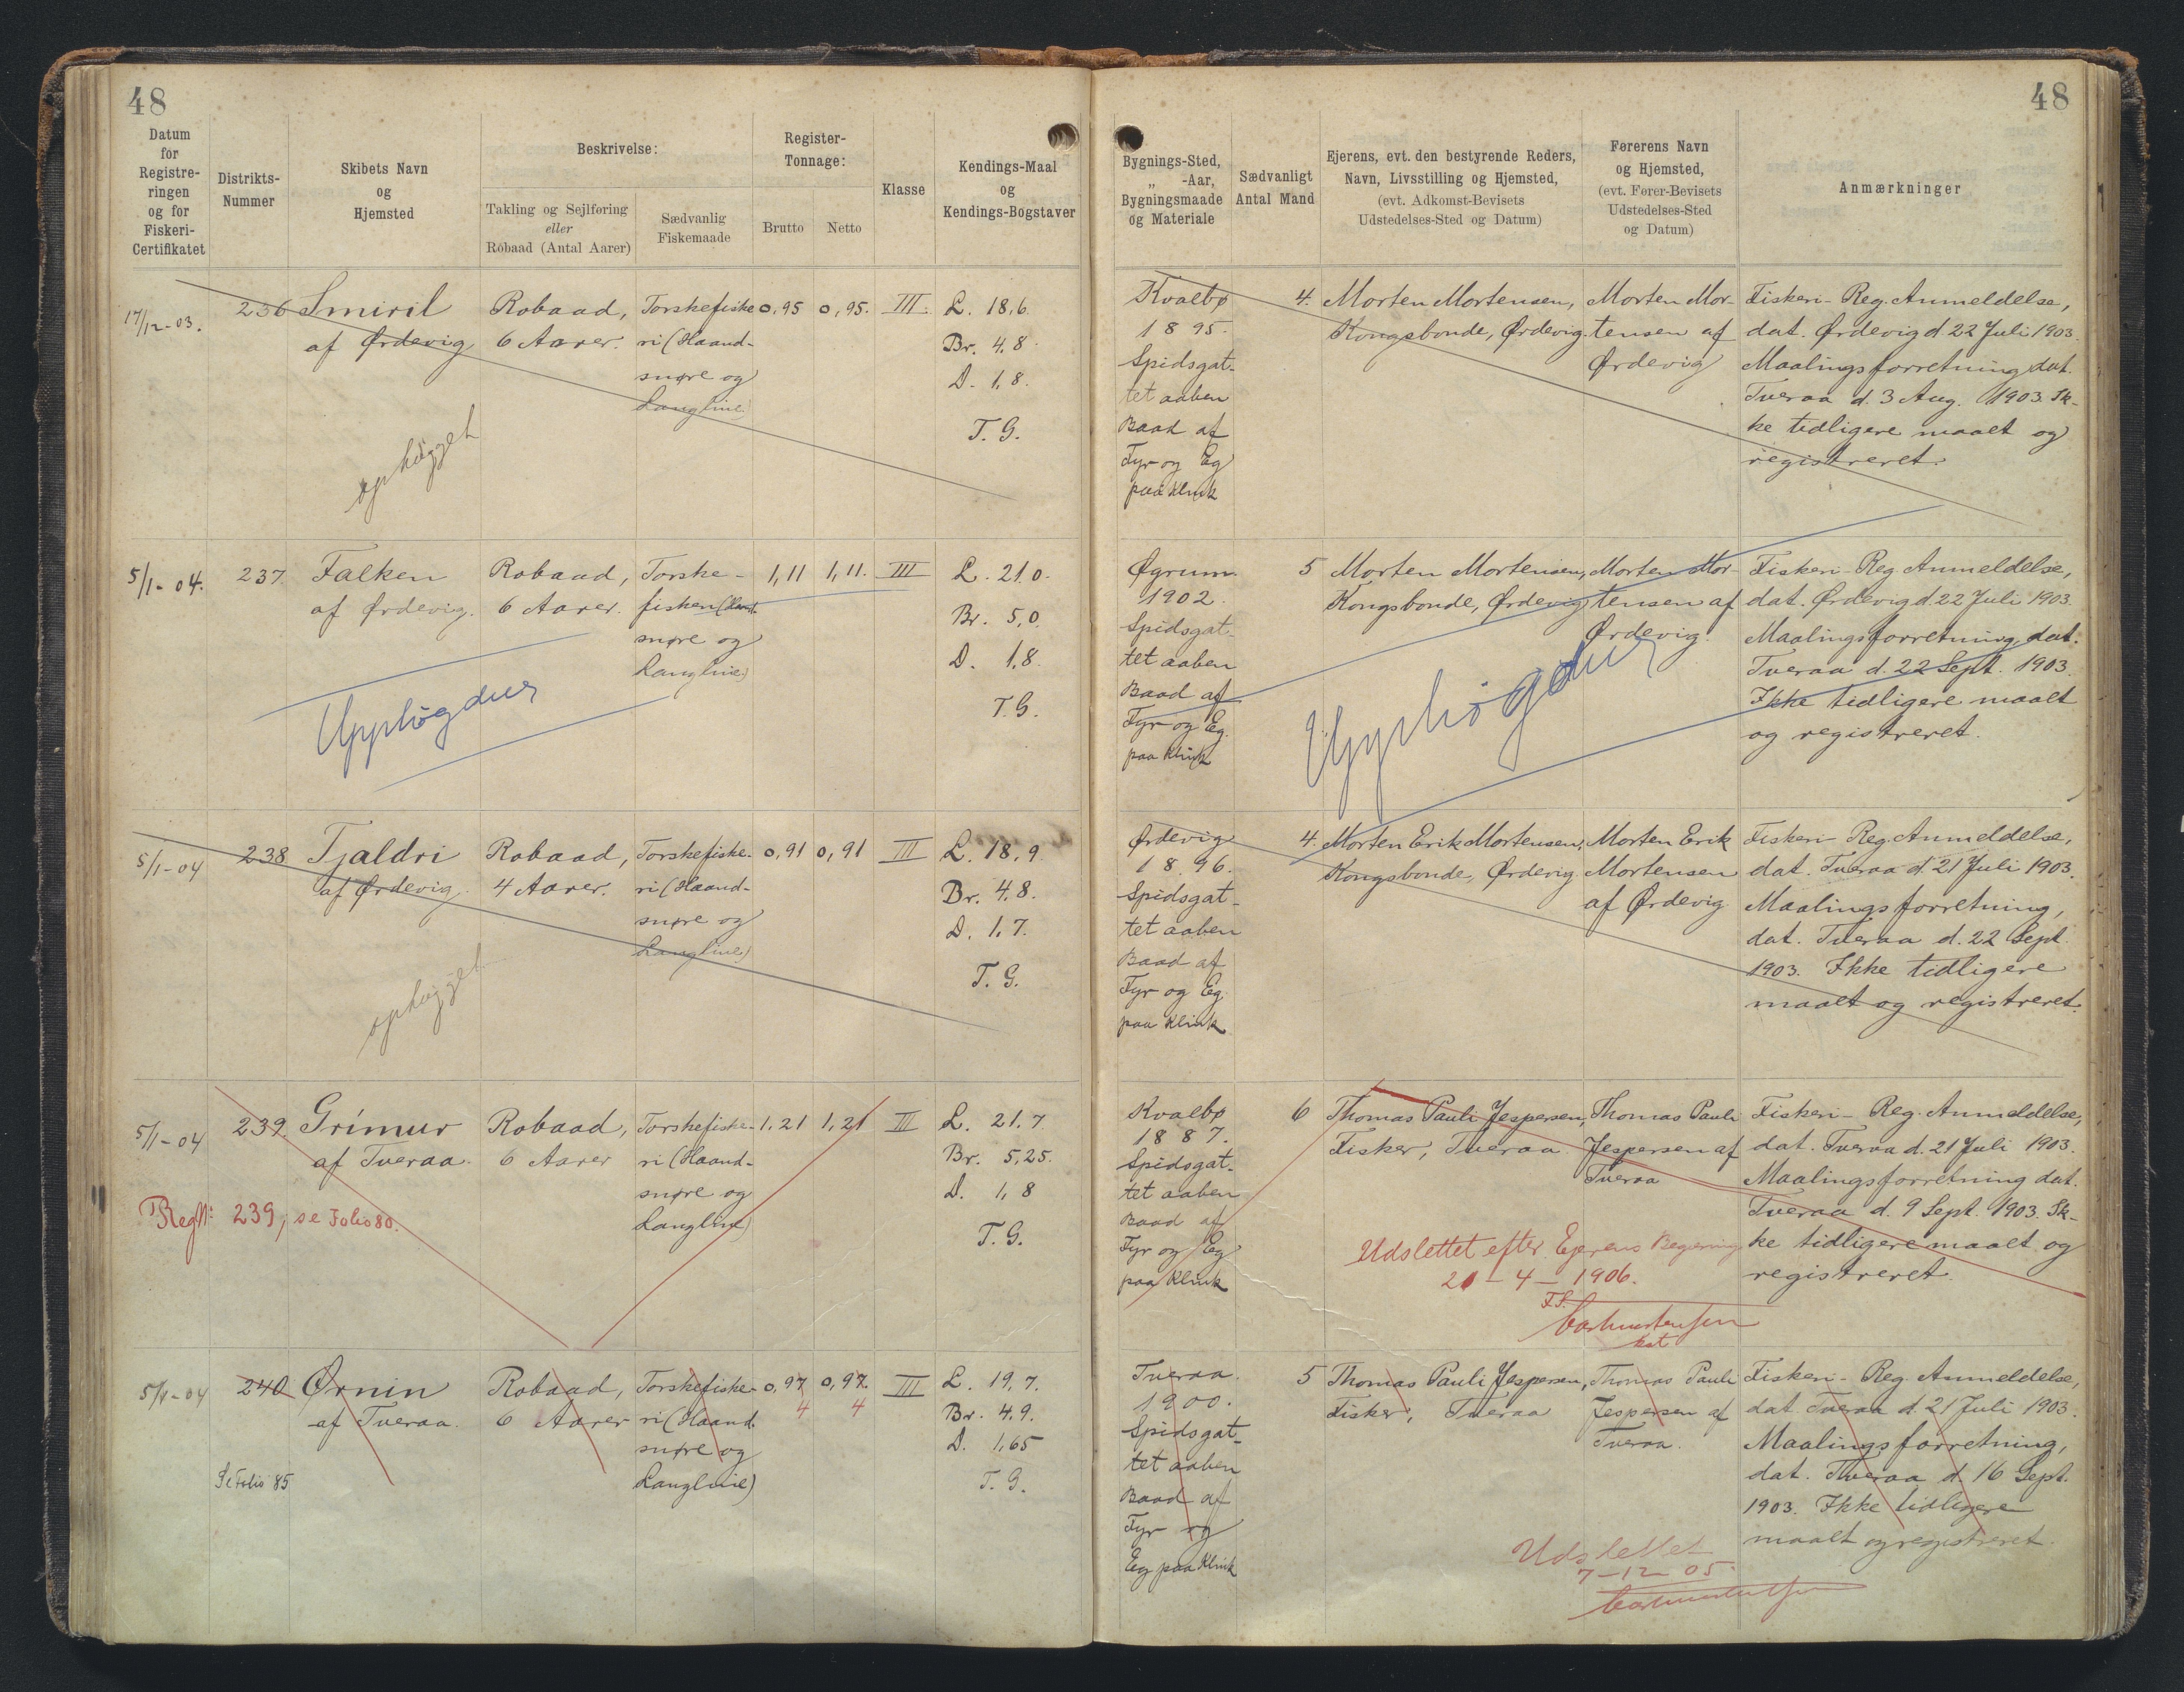 48
Datum
for
Registre-
ringen
og for
Fiskeri-
Certifikatet
Distrikts-
Nummer
Skibets Navn
og
Hjemsted
Beskrivelse:
Takling og Sejlføring
eller
Robaad (Antal Aarer)
Sædvanlig
Fiskemaade
Register-
Tonnage:
Brutto
Netto
Klasse
Kendings-Maal
og
Kendings-Bogstaver
17/12-03.
236
Smiril
af Ørdevig
ophügget
Robaad,
6 Aarer.
Torskefiske
ri (Haand-
snøre og
Langline)
0,95
0,95.
III.
L. 18,6.
Br. 4,8.
D. 1,8.
T. G.
5/1-04.
237.
Falken
af Ørdevig.
Upphøgdur
Robaad,
6 Aarer.
Torske-
fiskeri (Haand-
snøre og
Langline)
1,11
1,11.
III
L. 21.0.
Br. 5,0.
D. 1,8.
T. G.
5/1-04
238
Tjaldri
af Ørdevig.
ophugget
Robaad,
4 Aarer.
Torskefiske-
ri (Haand-
snøre og
Langline)
0,91
0,91
III
L. 18,9.
Br. 4,8.
D. 1,7.
T. G.
5/1-04
239.
Grímur
af Tveraa.
Reg №: 239, se Folio 80.
Robaad,
6 Aarer
Torskefiske-
ri (Haand-
snøre og
Langline)
1,21
1,21
III
L. 21,7.
Br. 5,25.
D. 1,8
T. G.
5/1-04
240
Ørnin
af Tveraa.
Se Folio 85
Robaad,
6 Aarer
Torskefiske-
ri (Haand-
snøre og
Langline)
0,97
4
0,97
4
III
L. 19,7.
Br. 4,9.
D. 1,65
T. G.
48
Bygnings-Sted,
„ -Aar,
Bygningsmaade
og Materiale
Sædvanligt
Antal Mand
Ejerens, evt. den bestyrende Reders,
Navn, Livsstilling og Hjemsted,
(evt. Adkomst-Bevisets
Udstedelses-Sted og Datum)
Førerens Navn
og Hjemsted,
(evt. Fører-Bevisets
Udstedelses-Sted
og Datum)
Anmærkninger
Kvalbø
1895.
Spidsgat-
tet aaben
Baad af
Fyr og Eg
paa Klink
4.
Morten Mortensen,
Kongsbonde, Ørdevig.
Morten Mor-
tensen af
Ørdevig
Fiskeri-Reg. Anmeldelse,
dat. Ørdevig d. 22 Juli 1903.
Maalingsforretning dat.
Tveraa d. 3 Aug. 1903. Ik-
ke tidligere maalt og
registreret.
Øgrum.
1902.
Spidsgat-
tet aaben
Baad af
Fyr og Eg.
paa Klink
5
Morten Mortensen,
Kongsbonde, Ørdevig
Morten Mor-
tensen af
Ørdevig.
Upphøgdur
Fiskeri-Reg. Anmeldelse,
dat. Ørdevig d. 22 Juli 1903.
Maalingsforretning dat.
Tveraa d. 22 Sept. 1903.
Ikke tidligere maalt
og registreret.
Ørdevig
1896.
Spidsgat-
tet aaben
Baad af
Fyr og Eg.
paa Klink
4.
Morten Erik Mortensen,
Kongsbonde, Ørdevig
Morten Erik
Mortensen
af Ørdevig
Fiskeri-Reg. Anmeldelse,
dat. Tveraa d. 21 Juli 1903.
Maalingsforretning,
dat. Tveraa d. 22 Sept.
1903. Ikke tidligere
maalt og registreret.
Kvalbø
1887.
Spidsgat-
tet aaben
Baad af
Fyr og Eg
paa Klink
6
Thomas Pauli Jespersen,
Fisker, Tveraa.
Thomas Pauli
Jespersen af
Tveraa
Udslettet efter Ejerens Begæring
21-4-1906.
Fiskeri-Reg. Anmeldelse,
dat. Tveraa d. 21 Juli 1903.
Maalingsforretning dat.
Tveraa d. 9 Sept. 1903. Ik-
ke tidligere maalt og
registreret.
Tveraa.
1900.
Spidsgat-
tet aaben
Baad af
Fyr og
Eg paa Klink
5
Thomas Pauli Jespersen,
Fisker, Tveraa
Thomas Pauli
Jespersen af
Tveraa.
Udslettet
7-12 05.
Fiskeri-Reg. Anmeldelse,
dat. Tveraa d. 21 Juli 1903.
Maalingsforretning,
dat. Tveraa d. 16 Sept.
1903. Ikke tidligere
maalt og registreret.